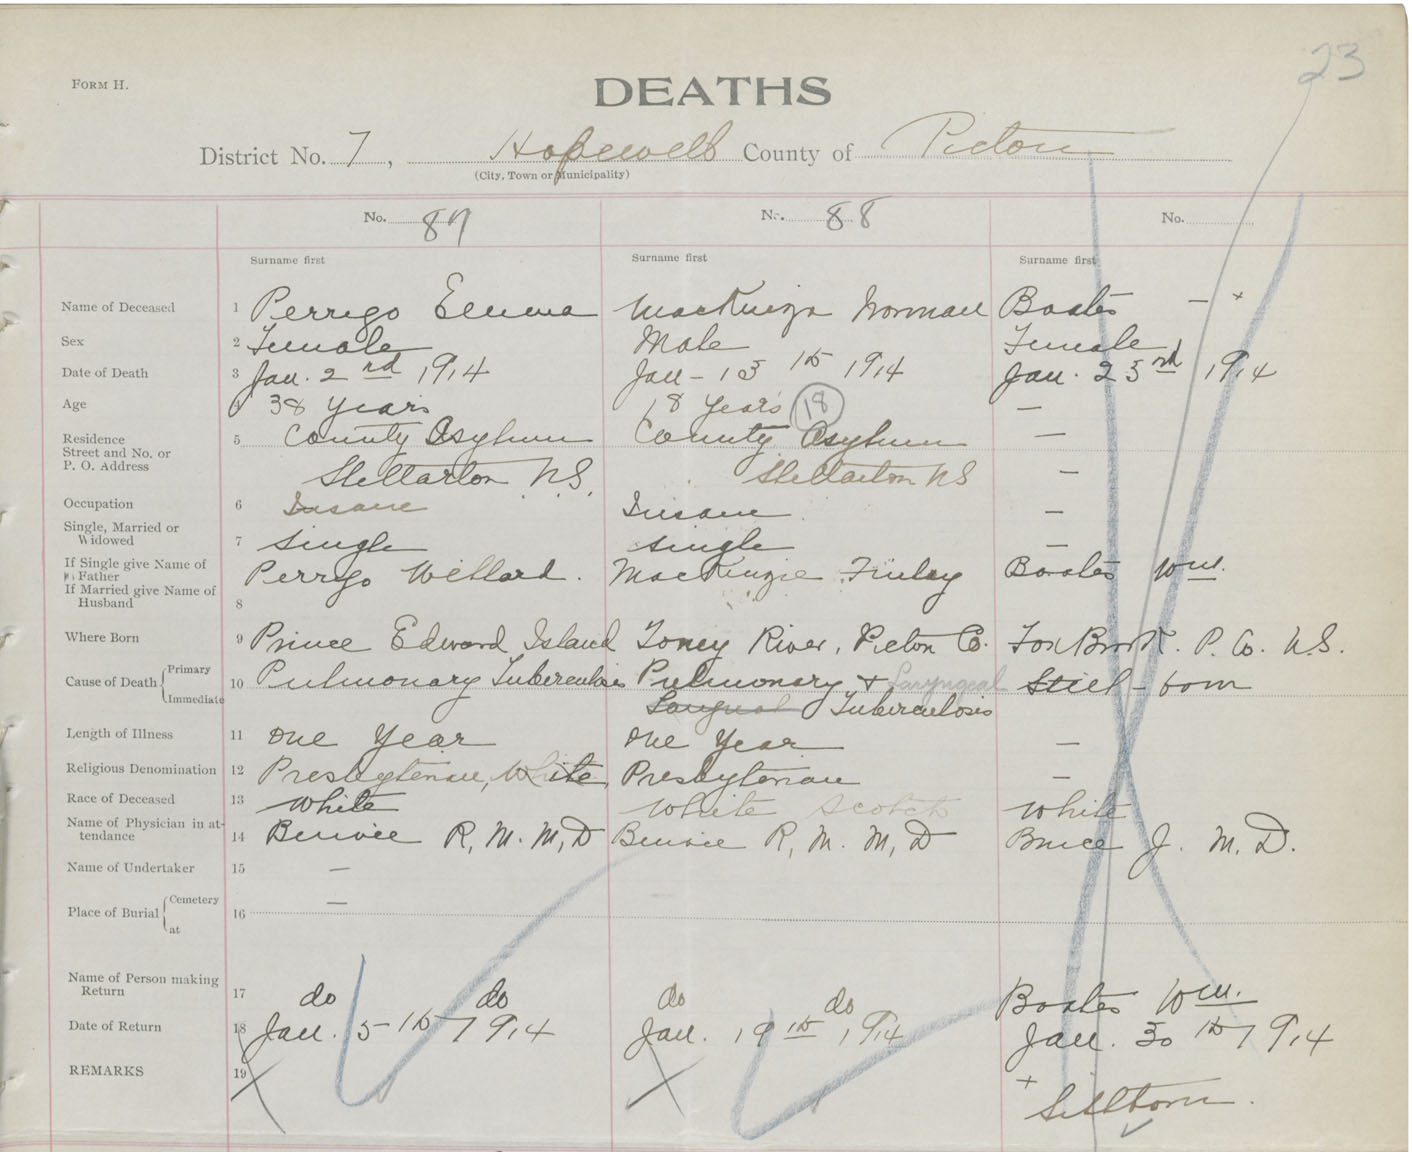 23
FORM H.
DEATHS
District No. 7, Hopewell County of Pictou
(City, Town or Municipality)
No. 87 No. 88 No.
Surname first Surname first Surname first
Name of Deceased 1 Perrigo Emma MacKenzie Norman Boates - +
Sex 2 Female Male Female
Date of Death 3 Jan. 2 rd 1914 Jan - 13 th 1914 Jan. 23 rd 1914
Age 4 38 Years 18 Years (18) —
Residence 5 County Asylum County Asylum —
Street and No. or
P. O. Address Stellarton N.S. Stellarton NS —
Occupation 6 Insane Insane —
Single, Married or
Widowed 7 Single Single —
If Single give Name of
Father Perrigo Willard. MacKenzie Finlay Boates Wm.
If Married give Name of
Husband 8
Where Born 9 Prince Edward Island Toney River, Pictou Co. Fox Brook. P. Co. N.S.
Cause of Death Primary 10 Pulmonary Tuberculosis Pulmonary + Laryngeal Still-born
Immediate Tuberculosis
Length of Illness 11 One Year One Year —
Religious Denomination 12 Presbyterian, White Presbyterian —
Race of Deceased 13 White White Scotch White
Name of Physician in at-
tendance 14 Benvie R, M. M, D Benvie R, M. M, D Bruce J. M. D.
Name of Undertaker 15 —
Place of Burial Cemetery —
16
at
Name of Person making
Return 17 do do do do Boates Wm.
Date of Return 18 Jan. 5 th 1914 Jan. 19 th 1914 Jan. 30 th 1914
REMARKS 19 X X + Stillborn.